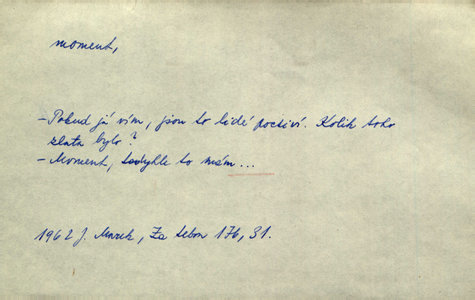 moment,
-Pokud já vím, jsou to lidé poctiví. Kolik toho
zlata bylo?
-Moment, tadyhle to mám...
1962 J. Marek, Za tebou 176, 31.